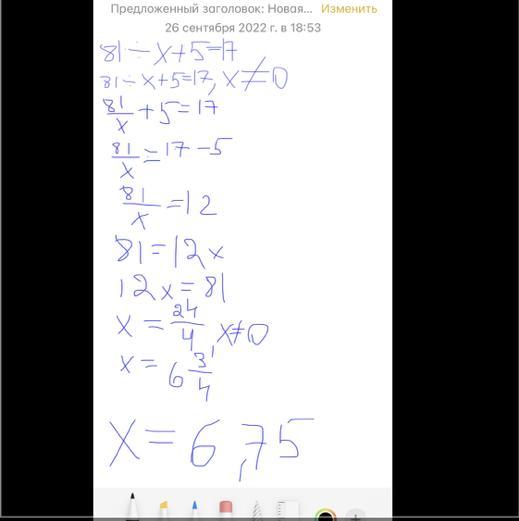 Предложенный заголовок: Новая... Изменить
26 сентября 2022 г. в 18:53
81 ÷ x + 5 = 17
81 ÷ x + 5 = 17, x ≠ 0
81/x + 5 = 17
81/x = 17 - 5
81/x = 12
81 = 12x
12x = 81
x = 24/4, x ≠ 0
x = 6 3/4
x = 6,75